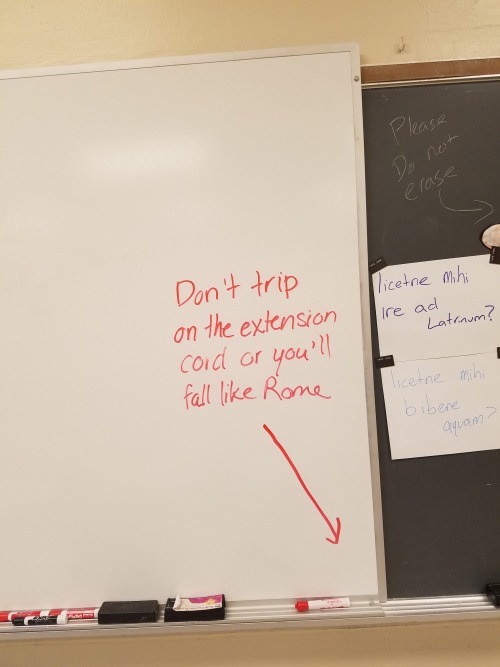 Don't trip
on the extension
cord or you'll
fall like Rome
Please
Do not
erase
licetne mihi
ire ad
Latrinum?
licetne mihi
bibere
aquam?